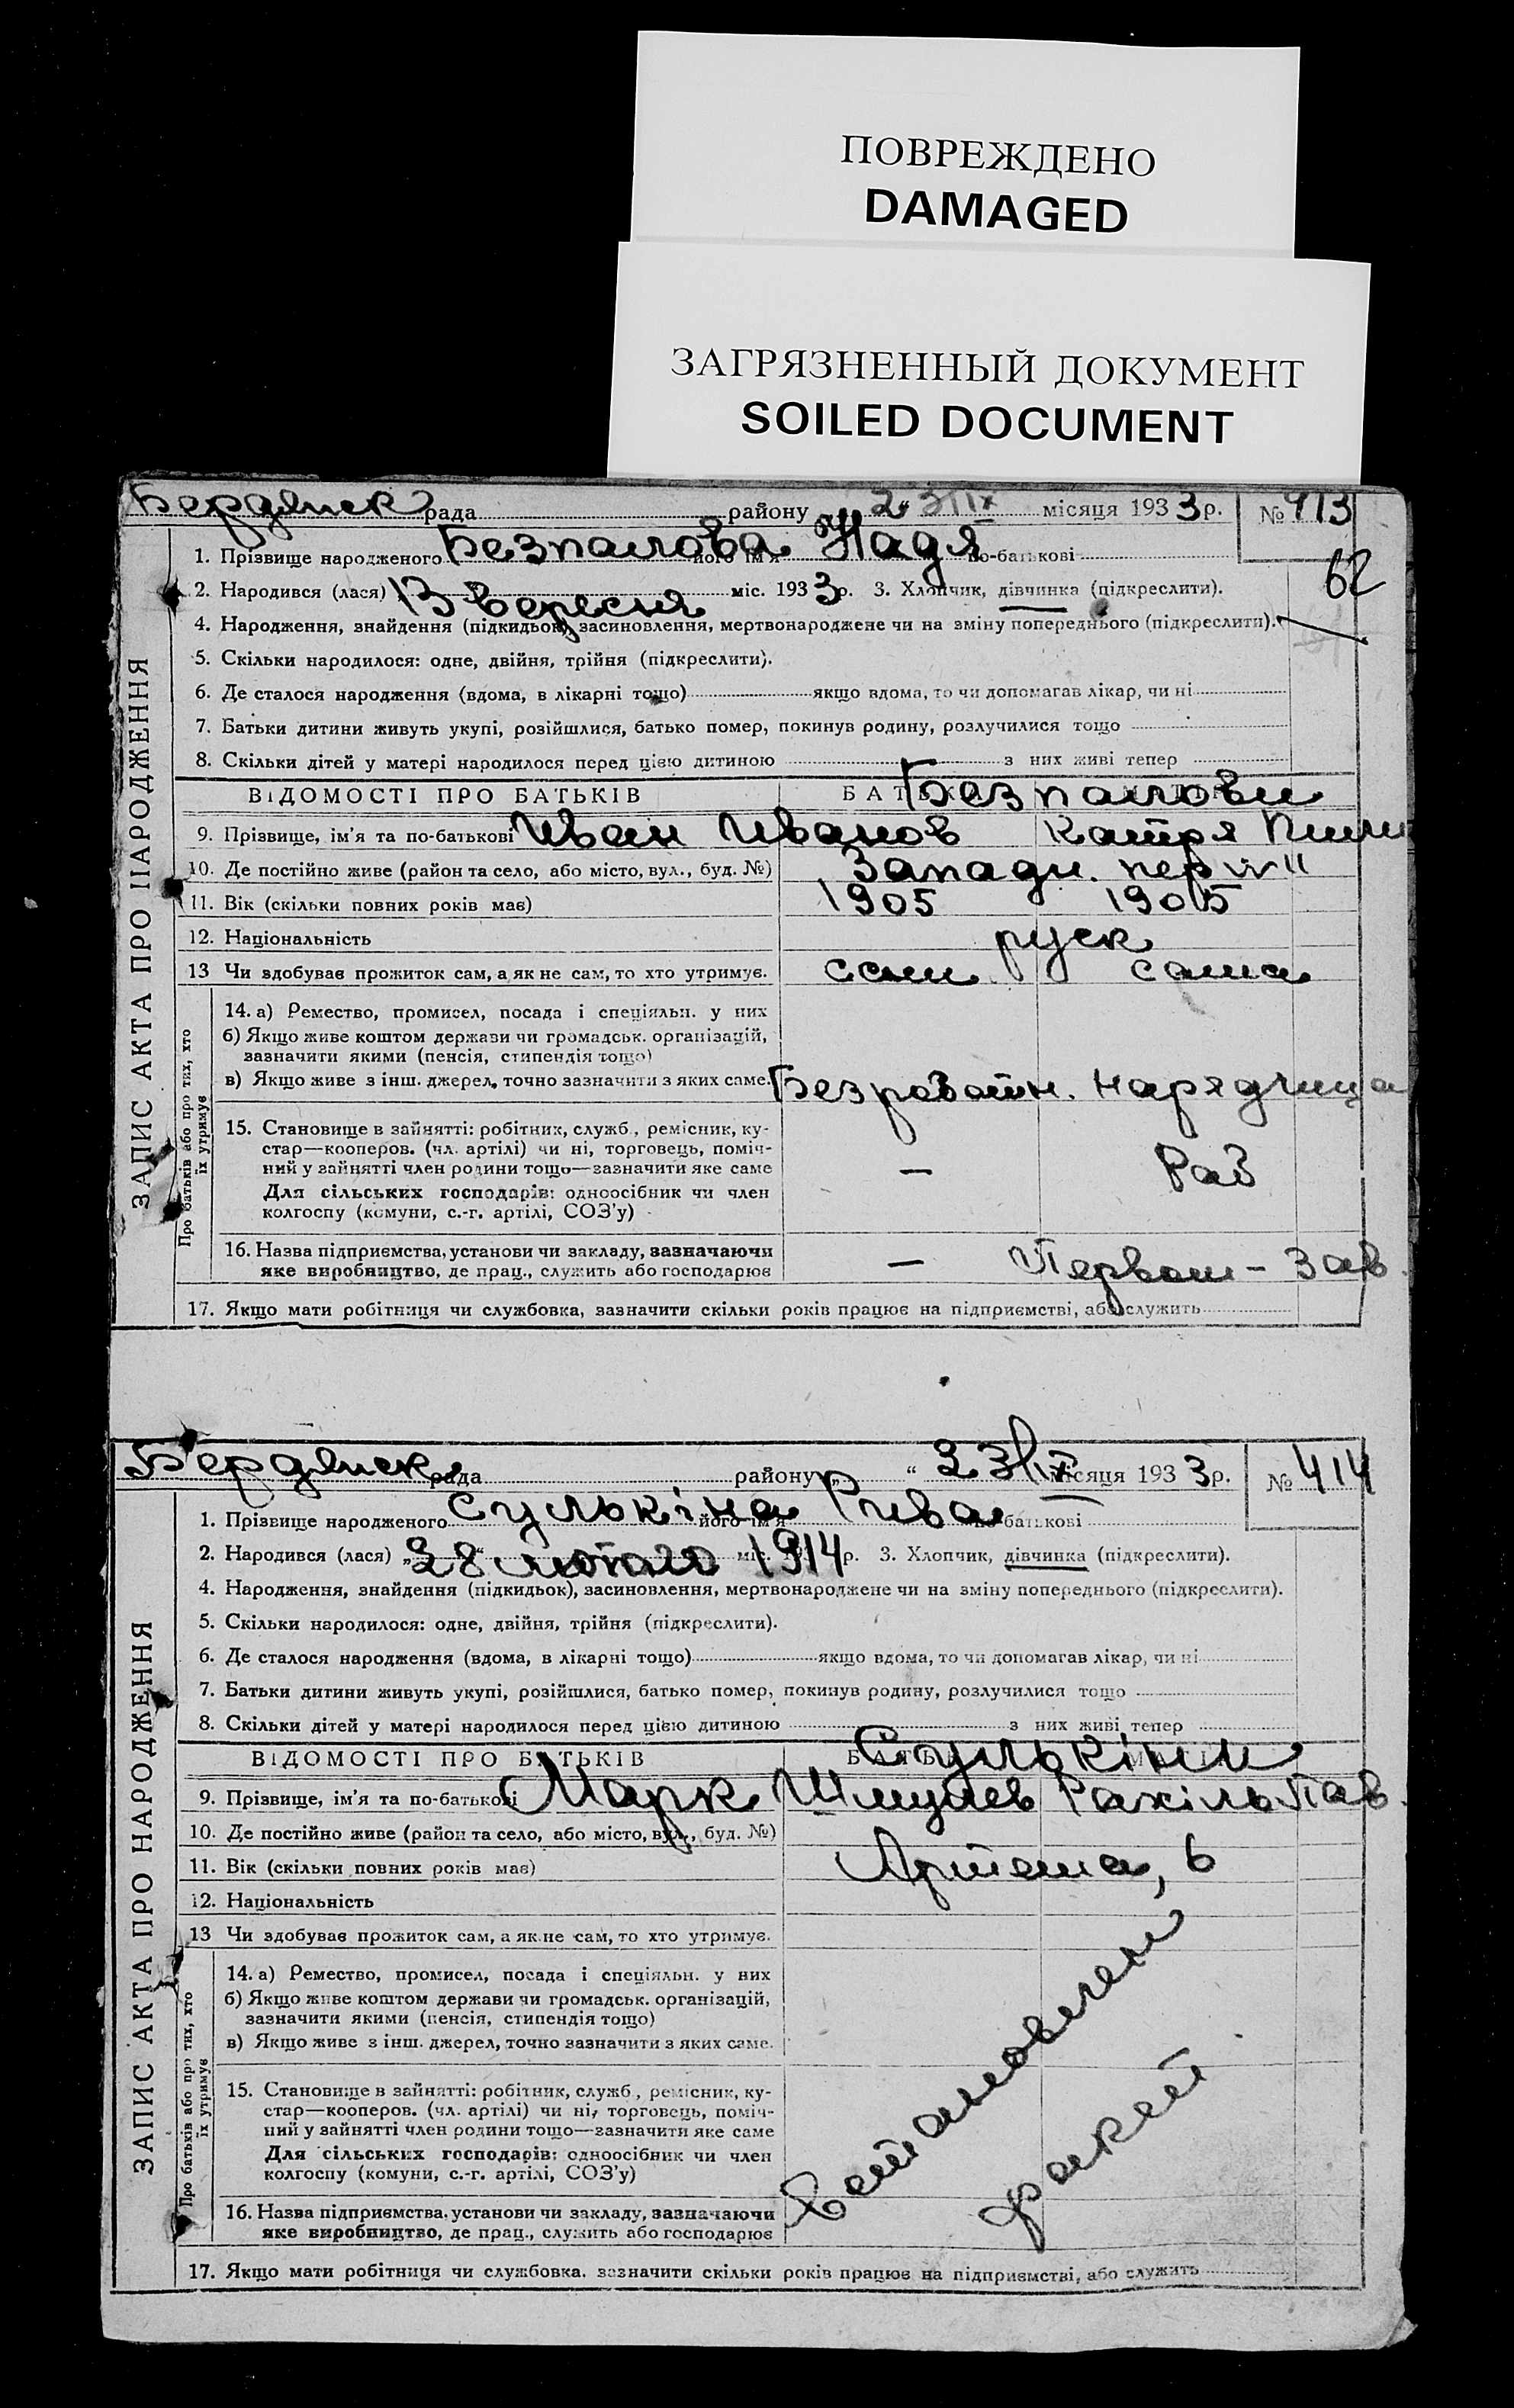 ПОВРЕЖДЕНО
DAMAGED
ЗАГРЯЗНЕННЫЙ ДОКУМЕНТ
SOILED DOCUMENT
Бердянск рада району 23/IX місяця 1933 р. № 413
62
1. Прізвище народженого Безпалова його ім'я Надя по-батькові
2. Народився (лася) 13 вересня міс. 1933 р. 3. Хлопчик, дівчинка (підкреслити).
4. Народження, знайдення (підкидьок), засиновлення, мертвонароджене чи на зміну попереднього (підкреслити).
5. Скільки народилося: одне, двійня, трійня (підкреслити).
6. Де сталося народження (вдома, в лікарні тощо) якщо вдома, то чи допомагав лікар, чи ні
7. Батьки дитини живуть укупі, розійшлися, батько помер, покинув родину, розлучилися тощо
8. Скільки дітей у матері народилося перед цією дитиною з них живі тепер
ВІДОМОСТІ ПРО БАТЬКІВ БАТЬКО Безпалови
9. Прізвище, ім'я та по-батькові Иван Иванов Катря
10. Де постійно живе (район та село, або місто, вул., буд. №) Западн. пер. № 11
11. Вік (скільки повних років має) 1905 1905
12. Національність руск
13 Чи здобуває прожиток сам, а як не сам, то хто утримує. сам сама
14. а) Ремество, промисел, посада і спеціяльн. у них
б) Якщо живе коштом держави чи громадськ. організацій,
зазначити якими (пенсія, стипендія тощо)
в) Якщо живе з інш. джерел, точно зазначити з яких саме. Безработн. нарядчица
15. Становище в зайнятті: робітник, служб., ремісник, ку-
стар—кооперов. (чл. артілі) чи ні, торговець, поміч-
ний у зайнятті член родини тощо—зазначити яке саме — Раб
Для сільських господарів: одноосібник чи член
колгоспу (комуни, с.-г. артілі, СОЗ'у)
16. Назва підприємства, установи чи закладу, зазначаючи
яке виробництво, де прац., служить або господарює — Первом-зав.
17. Якщо мати робітниця чи службовка, зазначити скільки років працює на підприємстві, або служить
ЗАПИС АКТА ПРО НАРОДЖЕННЯ
Про батьків або про тих, хто
їх утримує
Бердянск рада району „ “ 23/IX місяця 1933 р. № 414
1. Прізвище народженого Сулькіна його ім'я Рива по-батькові
2. Народився (лася) „28“ лютого міс. 1914 р. 3. Хлопчик, дівчинка (підкреслити).
4. Народження, знайдення (підкидьок), засиновлення, мертвонароджене чи на зміну попереднього (підкреслити).
5. Скільки народилося: одне, двійня, трійня (підкреслити).
6. Де сталося народження (вдома, в лікарні тощо) якщо вдома, то чи допомагав лікар, чи ні
7. Батьки дитини живуть укупі, розійшлися, батько помер, покинув родину, розлучилися тощо
8. Скільки дітей у матері народилося перед цією дитиною з них живі тепер
ВІДОМОСТІ ПРО БАТЬКІВ БАТЬКО Сулькіни МАТИ
9. Прізвище, ім'я та по-батькові Марк Шмулев Рахіль Пав.
10. Де постійно живе (район та село, або місто, вул., буд. №)
11. Вік (скільки повних років має) Артема, 6
12. Національність
13 Чи здобуває прожиток сам, а як не сам, то хто утримує.
14. а) Ремество, промисел, посада і спеціяльн. у них
б) Якщо живе коштом держави чи громадськ. організацій,
зазначити якими (пенсія, стипендія тощо)
в) Якщо живе з інш. джерел, точно зазначити з яких саме.
15. Становище в зайнятті: робітник, служб., ремісник, ку-
стар—кооперов. (чл. артілі) чи ні, торговець, поміч-
ний у зайнятті член родини тощо—зазначити яке саме
Для сільських господарів: одноосібник чи член
колгоспу (комуни, с.-г. артілі, СОЗ'у)
16. Назва підприємства, установи чи закладу, зазначаючи
яке виробництво, де прац., служить або господарює
17. Якщо мати робітниця чи службовка, зазначити скільки років працює на підприємстві, або служить
ЗАПИС АКТА ПРО НАРОДЖЕННЯ
Про батьків або про тих, хто
їх утримує